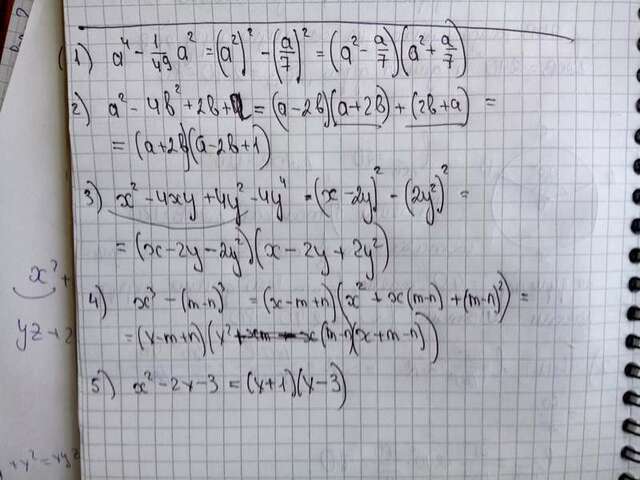 1) a⁴ - 1/49 a² = (a²)² - (a/7)² = (a² - a/7)(a² + a/7)
2) a² - 4b² + 2b + a = (a - 2b)(a + 2b) + (2b + a) =
= (a + 2b)(a - 2b + 1)
3) x² - 4xy + 4y² - 4y⁴ = (x - 2y)² - (2y²)² =
= (x - 2y - 2y²)(x - 2y + 2y²)
4) x³ - (m-n)³ = (x - m + n)(x² + x(m-n) + (m-n)²) =
5) x² - 2x - 3 = (x + 1)(x - 3)
x² +
yz + 2
+ y² = 4y²